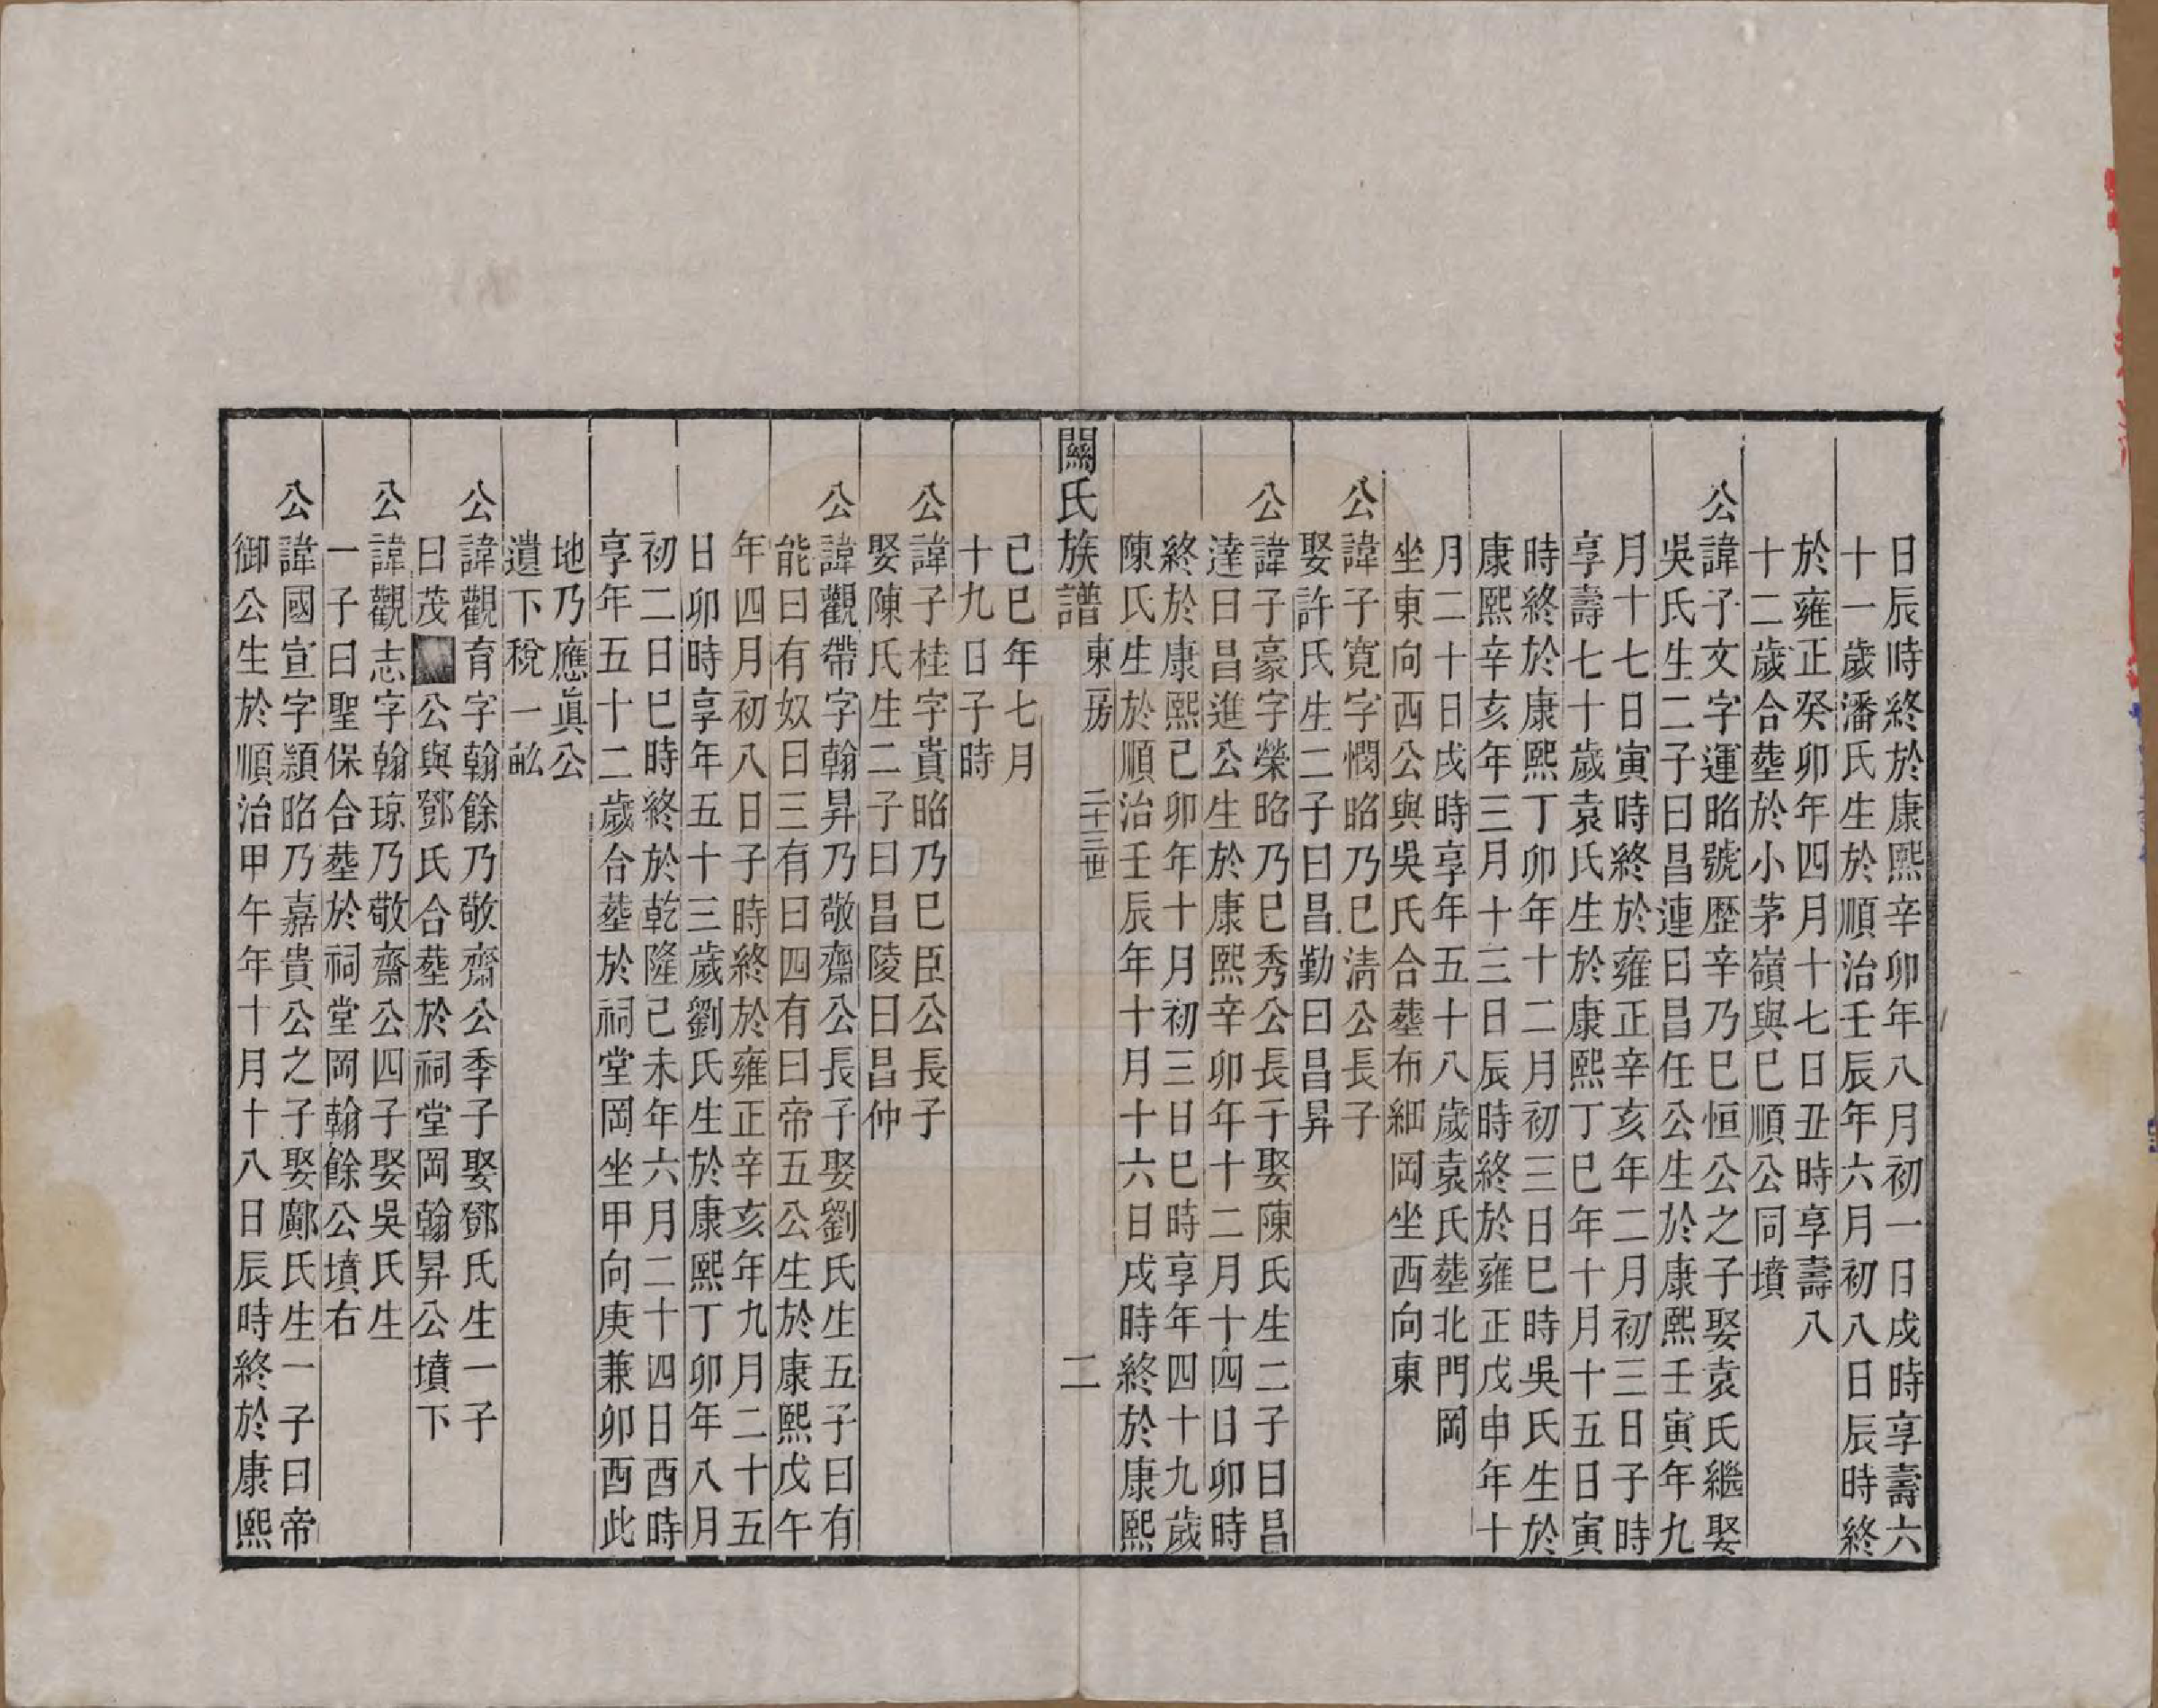 日辰時終於康熙辛卯年八月初一日戌時享壽六
十一歲潘氏生於順治壬辰年六月初八日辰時終
於雍正癸卯年四月十七日丑時享壽八
十二歲合塟於小茅嶺與巳順公同墳
公諱子文字運昭號歷辛乃巳恒公之子娶袁氏繼娶
吳氏生二子曰昌連曰昌任公生於康熙壬寅年九
月十七日寅時終於雍正辛亥年二月初三日子時
享壽七十歲袁氏生於康熙丁巳年十月十五日寅
時終於康熙丁卯年十二月初三日巳時吳氏生於
康熙辛亥年三月十三日辰時終於雍正戊申年十
月二十日戌時享年五十八歲袁氏塟北門岡
坐東向西公與吳氏合塟布細岡坐西向東
公諱子寬字憫昭乃巳淸公長子
娶許氏生二子曰昌勤曰昌昇
公諱子豪字榮昭乃巳秀公長子娶陳氏生二子曰昌
達曰昌進公生於康熙辛卯年十二月十四日卯時
終於康熙己卯年十月初三日巳時享年四十九歲
陳氏生於順治壬辰年十月十六日戌時終於康熙
關氏族譜 東房 二十三世 二
己巳年七月
十九日子時
公諱子桂字貴昭乃巳臣公長子
娶陳氏生二子曰昌陵曰昌仲
公諱觀帶字翰昇乃敬齋公長子娶劉氏生五子曰有
能曰有奴曰三有曰四有曰帝五公生於康熙戊午
年四月初八日子時終於雍正辛亥年九月二十五
日卯時享年五十三歲劉氏生於康熙丁卯年八月
初二日巳時終於乾隆己未年六月二十四日酉時
享年五十二歲合塟於祠堂岡坐甲向庚兼卯酉此
地乃應眞公
遺下稅一畝
公諱觀育字翰餘乃敬齋公季子娶鄧氏生一子
曰茂公與鄧氏合塟於祠堂岡翰昇公墳下
公諱觀志字翰琼乃敬齋公四子娶吳氏生
一子曰聖保合塟於祠堂岡翰餘公墳右
公諱國宣字頴昭乃嘉貴公之子娶鄺氏生一子曰帝
御公生於順治甲午年十月十八日辰時終於康熙